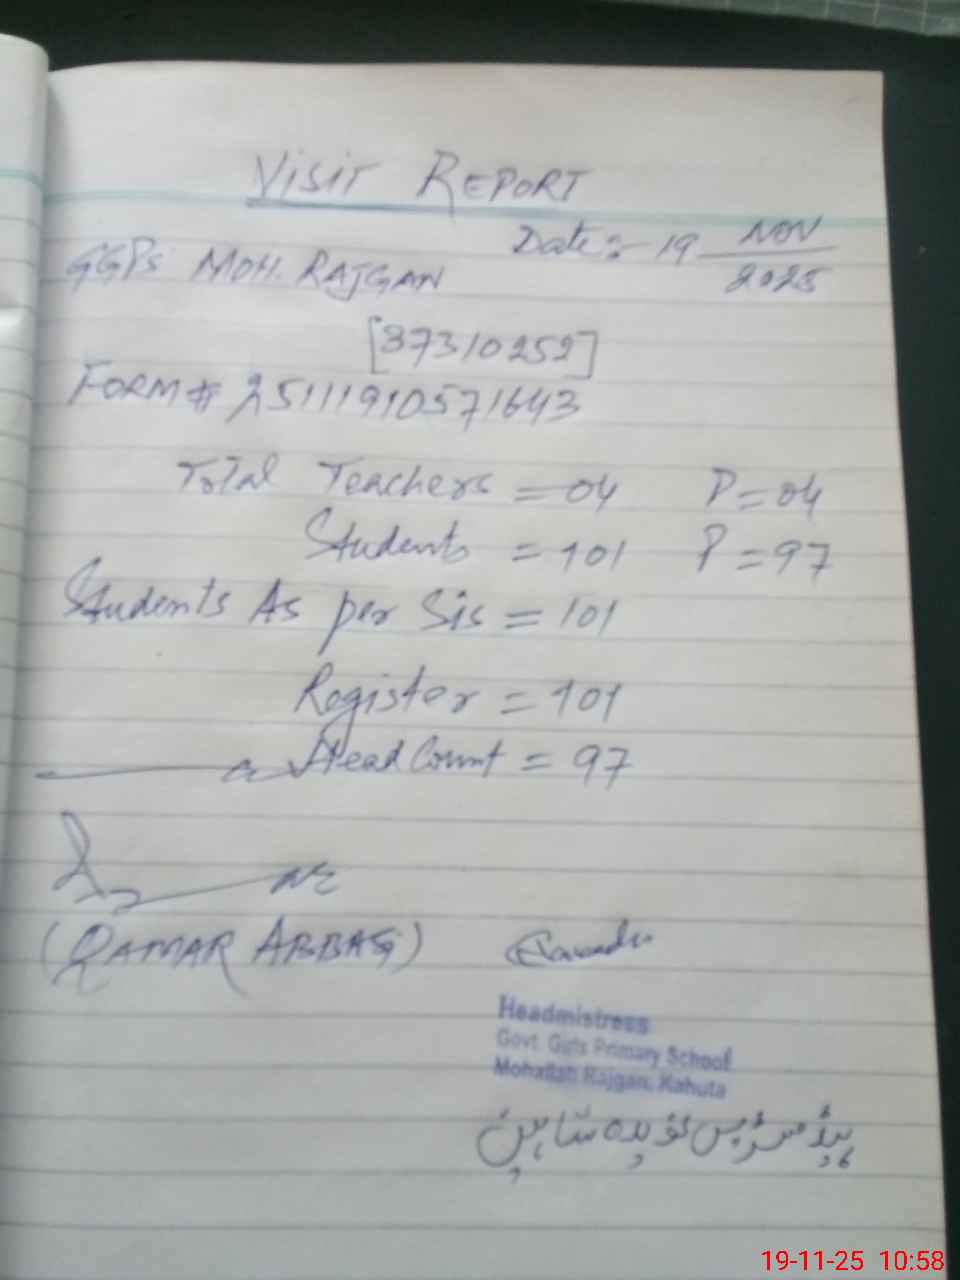 VISIT REPORT
Date:- 19 NOV 2025
GGPS MOH. RAJGAN
[37310252]
FORM # 25111910571643
Total Teachers = 04 P = 04
Students = 101 P = 97
Students As per Sis = 101
Register = 101
Head Count = 97
(QAMAR ABBAS)
Headmistress
Govt. Girls Primary School
Mohallah Rajgan, Kahuta
ہیڈ مسٹریس نویدہ شاہین
19-11-25 10:58